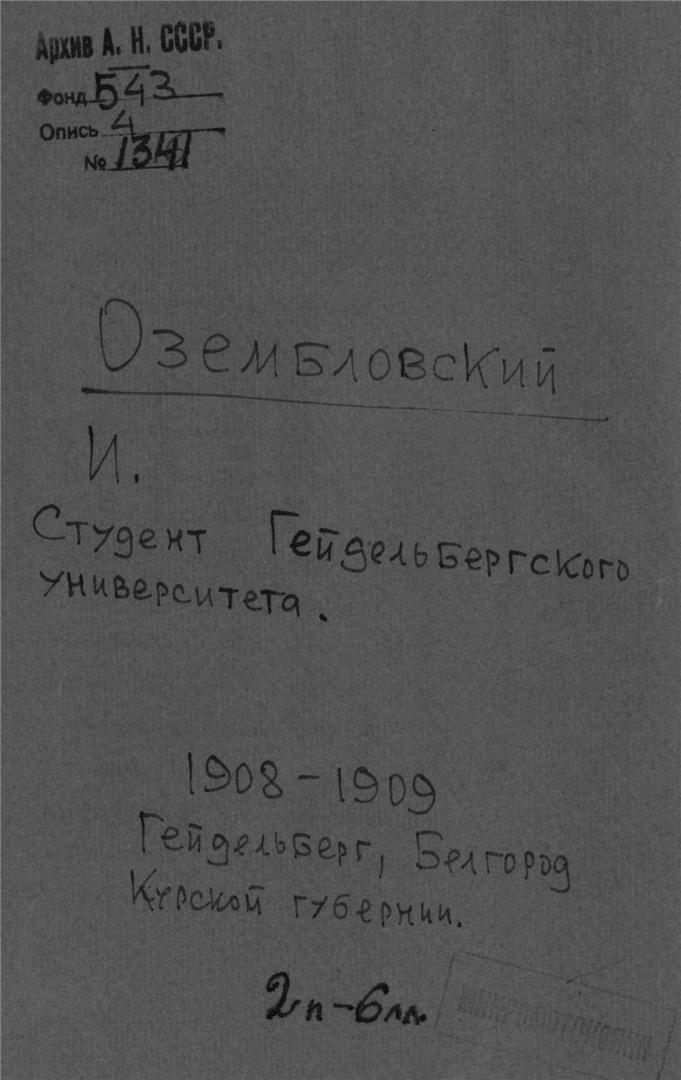 Архив А. Н. СССР.
Фонд 543
Опись 4
№ 1341
Озембловский
И.
Студент Гейдельбергского
университета.
1908-1909
Гейдельберг, Белгород
Курской губернии.
2п-6лл.